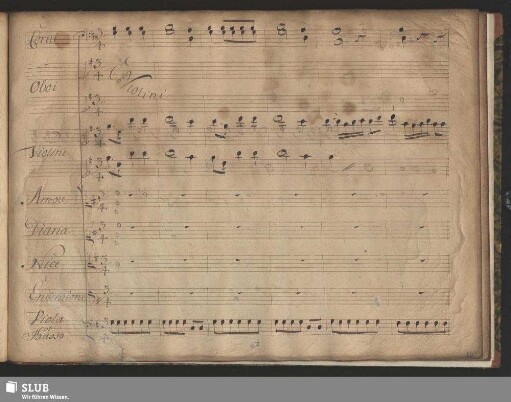 Corni
Oboi
Co Violini
Violini
Amor
Diana
Nice
Endimione
Viola
e Basso
SLUB
Wir führen Wissen.